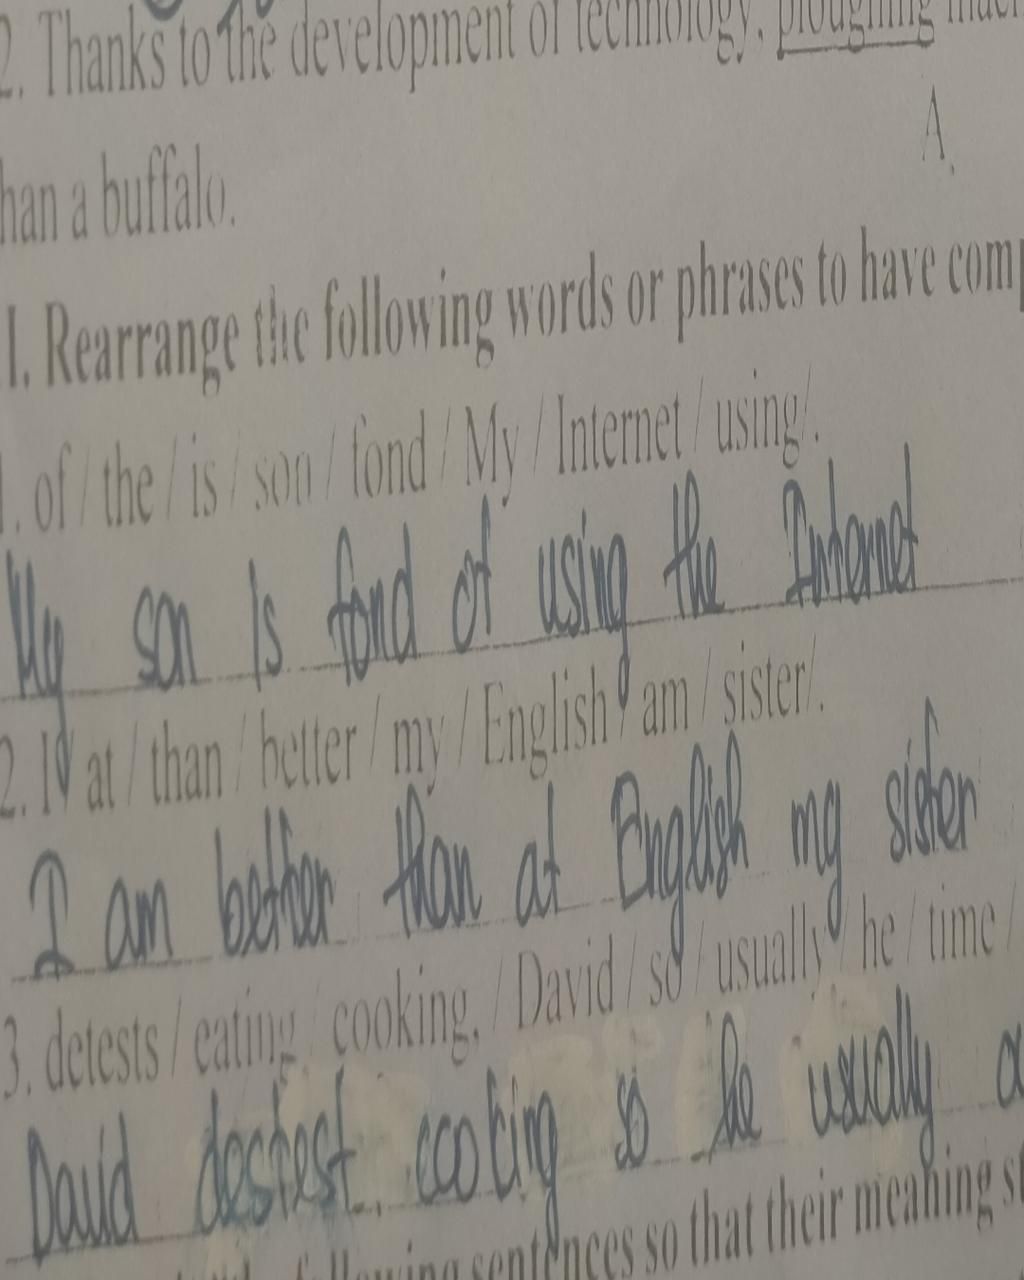 2. Thanks to the development of technology, ploughing
A.
han a buffalo.
I. Rearrange the following words or phrases to have
1. of / the / is / son / fond / My / Internet / using/.
My son is fond of using the Internet
2. I/ at / than / better / my / English / am / sister/.
I am better than at English my sister
3. detests / eating / cooking, / David / so / usually / he / time /
David destest cooking so he usually
following sentences so that their meaning